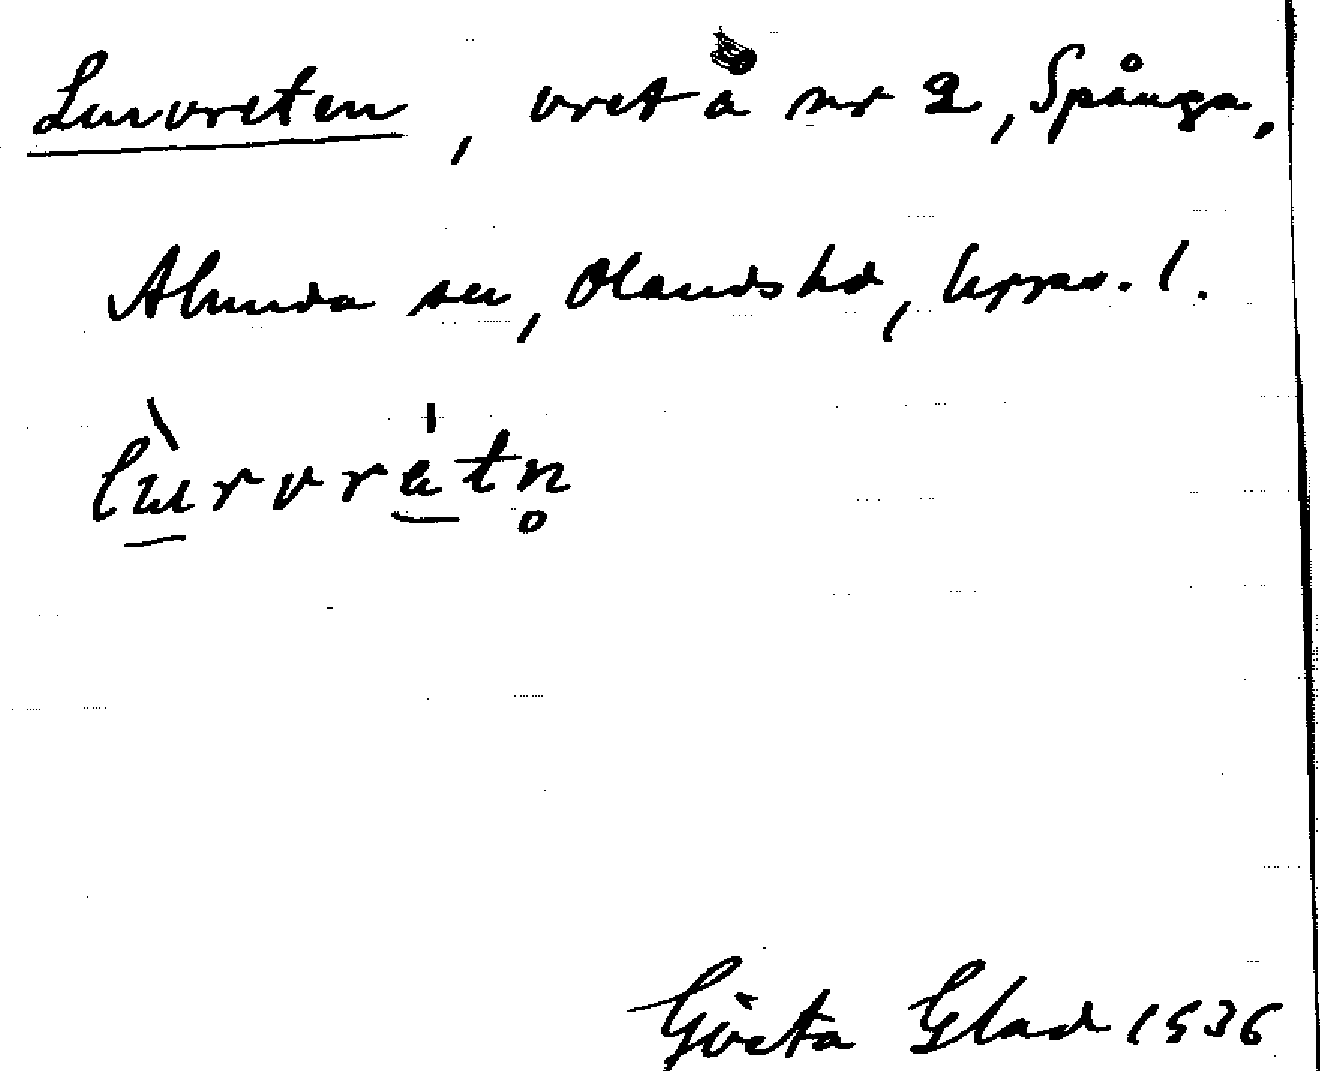 Lurvreten, vret å nr 2, Spånga,
Alunda sn, Olands hd, Upps. l.
Gösta Glad 1936